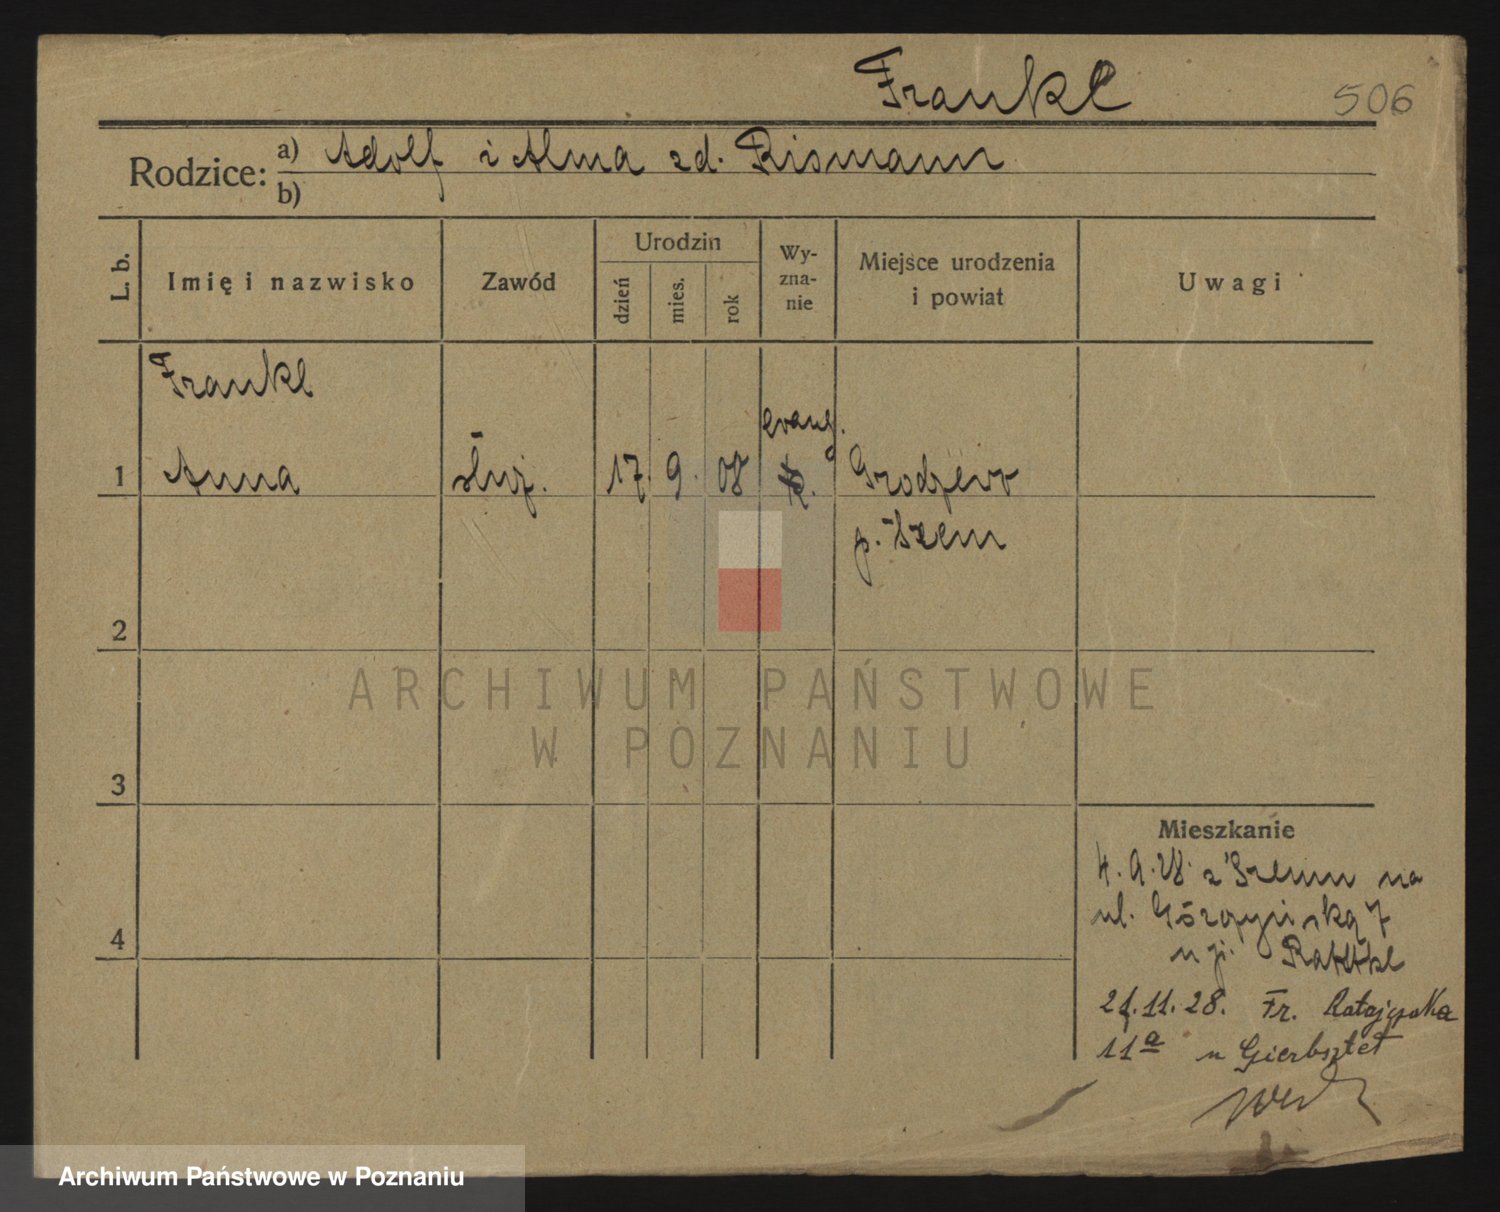 Frankl
506
Rodzice: a) Adolf i Alma zd. Rismann
b)
L. b. Imię i nazwisko Zawód Urodzin dzień mies. rok Wy-zna-nie Miejsce urodzenia i powiat Uwagi
Frankl
evang.
1 Anna służ. 17. 9. 08
p. Szem
2
ARCHIWUM PAŃSTWOWE
W POZNANIU
3
Mieszkanie
4. 9. 28. z na
ul. 7
4
u p.
21. 11. 28. Fr. Ratajczaka
11a u
Archiwum Państwowe w Poznaniu